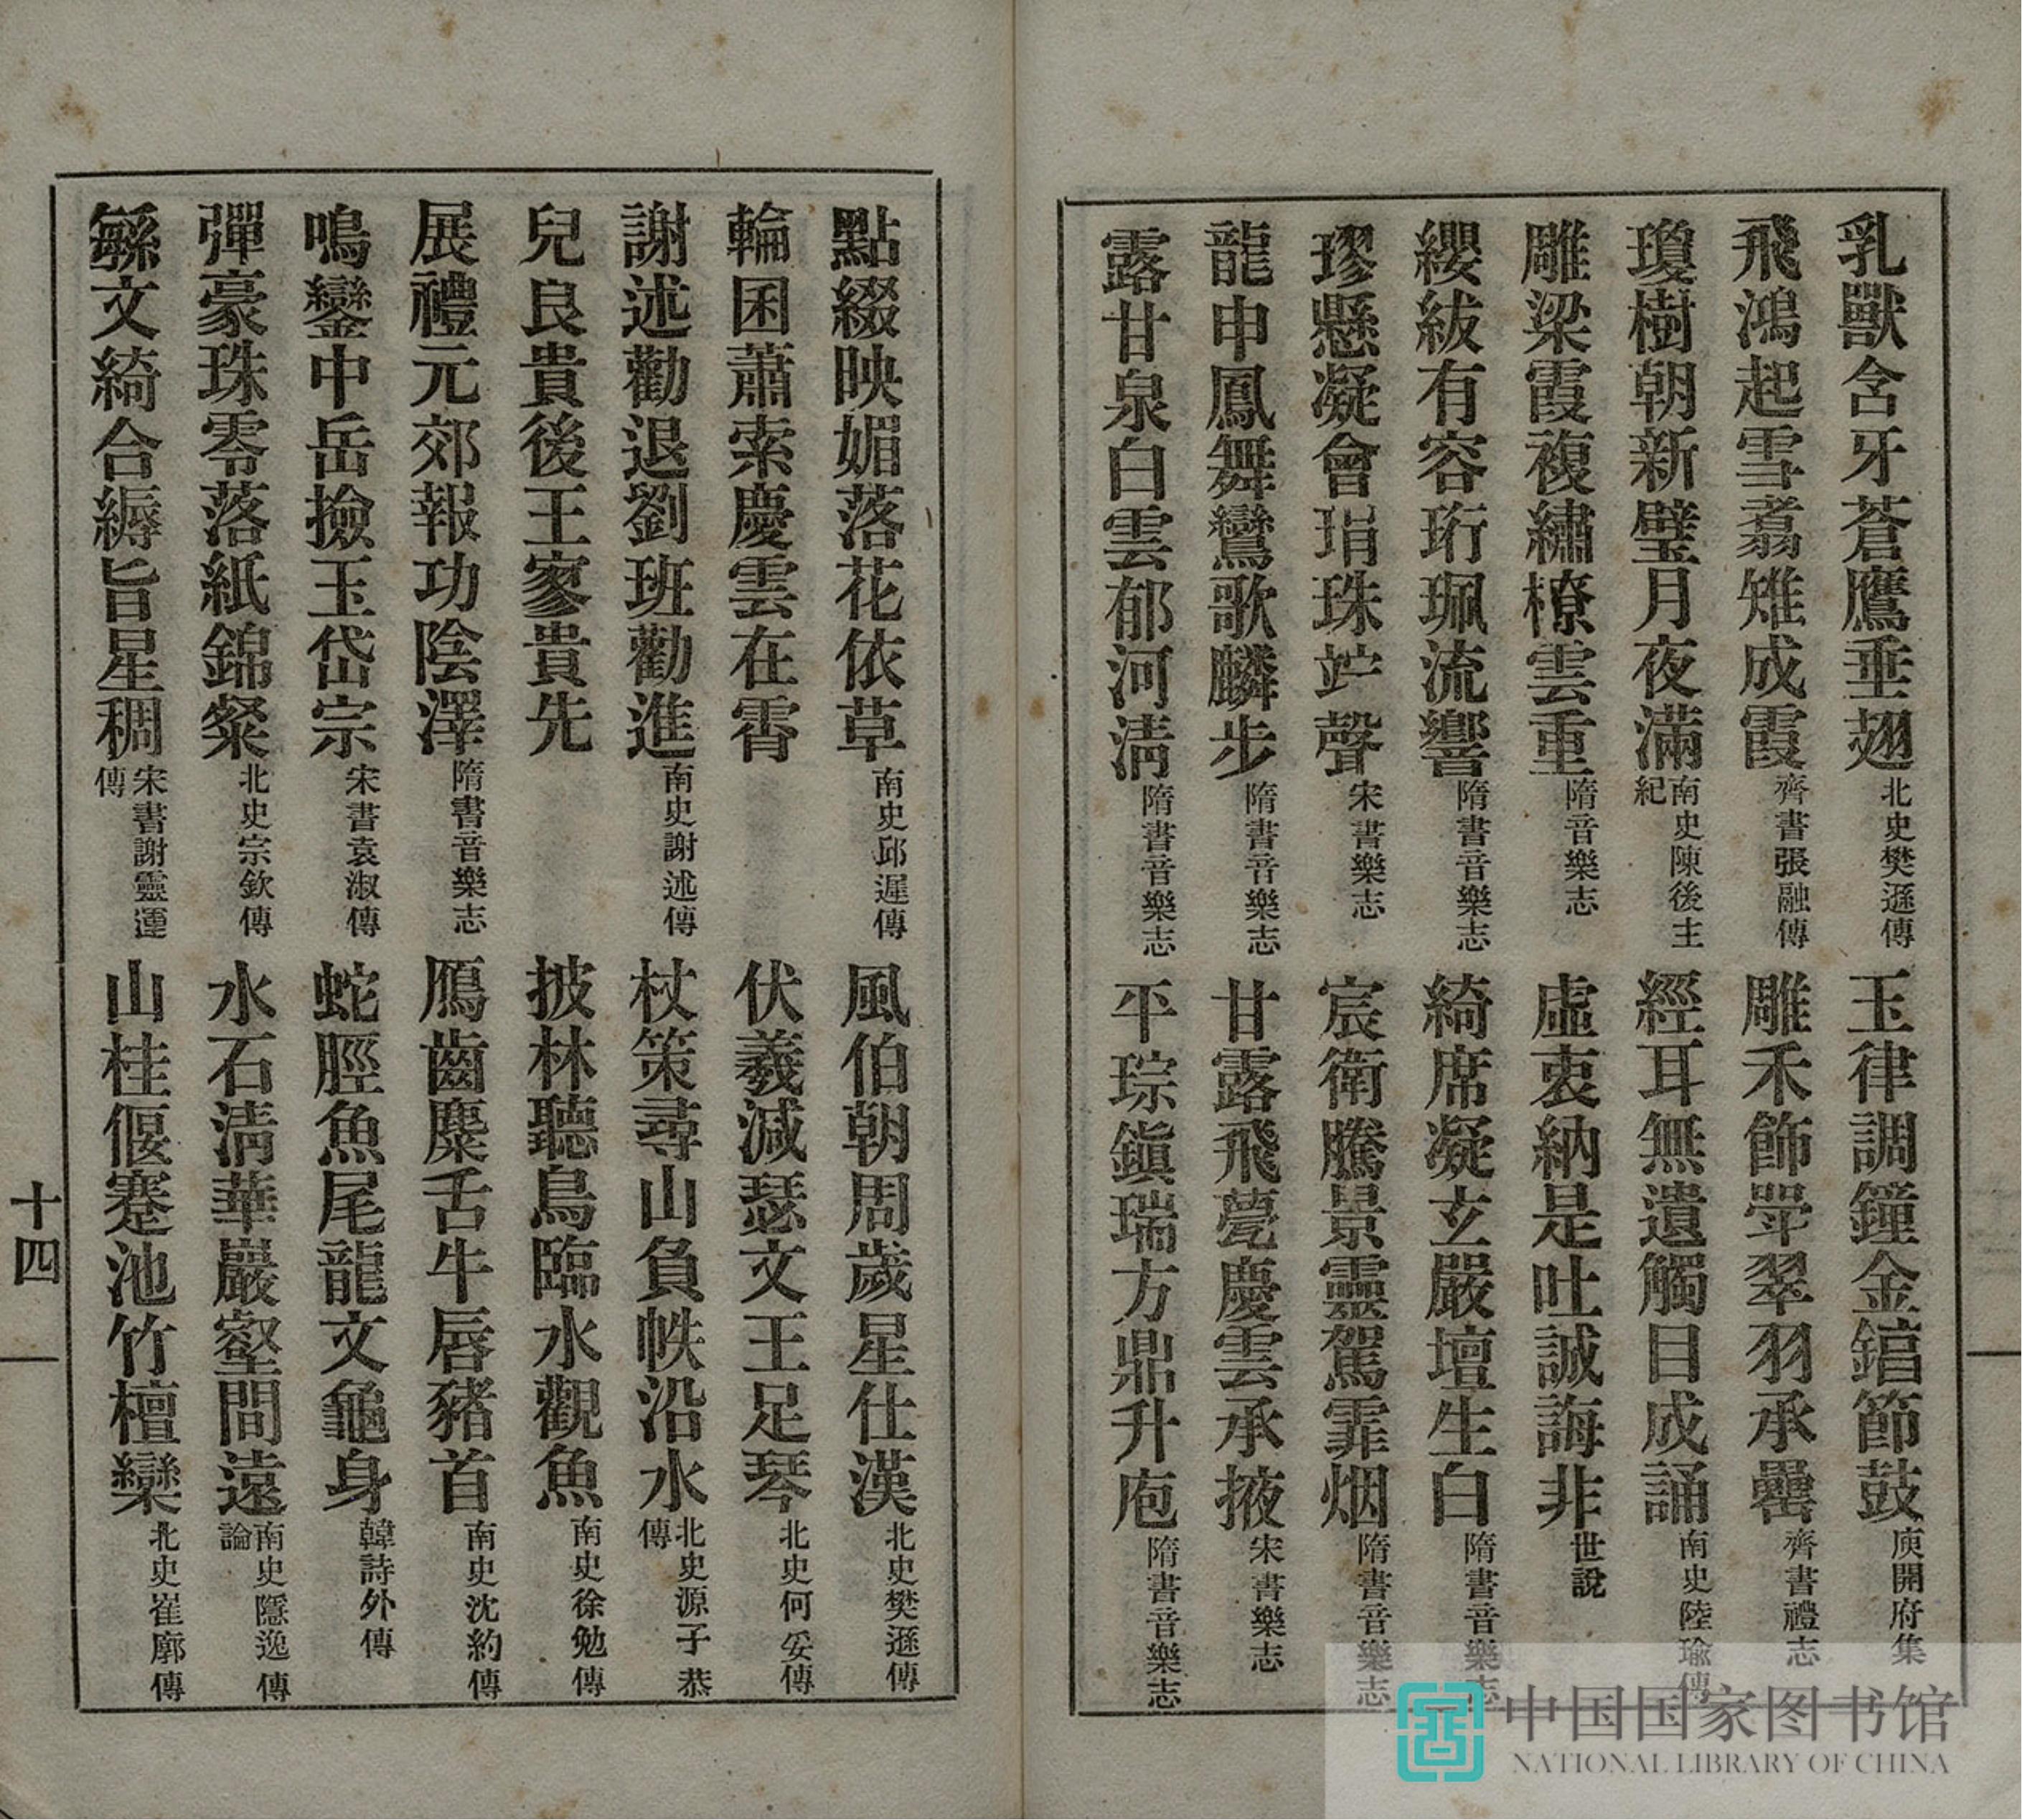 乳獸含牙蒼鷹垂翅北史樊遜傳 玉律調鐘金錇節鼓庾開府集
飛鴻起雪翥雉成霞齊書張融傳 雕禾飾斝翠羽承罍齊書禮志
瓊樹朝新璧月夜滿南史陳後主紀 經耳無遺觸目成誦南史陸瑜傳
雕梁霞複繡橑雲重隋音樂志 虛衷納是吐誠誨非世說
纓紱有容珩珮流響隋書音樂志 綺席凝玄嚴壇生白隋書音樂志
璆懸凝會琄珠竚聲宋書樂志 宸衛騰景靈駕霏烟隋書音樂志
龍申鳳舞鸞歌麟步隋書音樂志 甘露飛甍慶雲承掖宋書樂志
露甘泉白雲郁河淸隋書音樂志 平琮鎭瑞方鼎升庖隋書音樂志
點綴映媚落花依草南史邱遲傳 風伯朝周歲星仕漢北史樊遜傳
輪囷蕭索慶雲在霄 伏羲減瑟文王足琴北史何妥傳
謝述勸退劉班勸進南史謝述傳 杖策尋山負帙沿水北史源子恭傳
兒良貴後王寥貴先 披林聽鳥臨水觀魚南史徐勉傳
展禮元郊報功陰澤隋書音樂志 鴈齒麋舌牛唇豬首南史沈約傳
鳴鑾中岳撿玉岱宗宋書袁淑傳 蛇脛魚尾龍文龜身韓詩外傳
彈豪珠零落紙錦粲北史宗欽傳 水石淸華巖壑閒遠南史隱逸傳論
緐文綺合縟旨星稠宋書謝靈運傳 山桂偃蹇池竹檀欒北史崔廓傳
十四
中国国家图书馆
NATIONAL LIBRARY OF CHINA